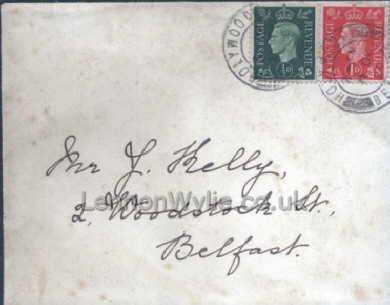 HOLYWOOD
POSTAGE
REVENUE
½D
POSTAGE
REVENUE
1D
Mr J. Kelly,
2, Woodstock St.,
Belfast.
LennonWylie.co.uk